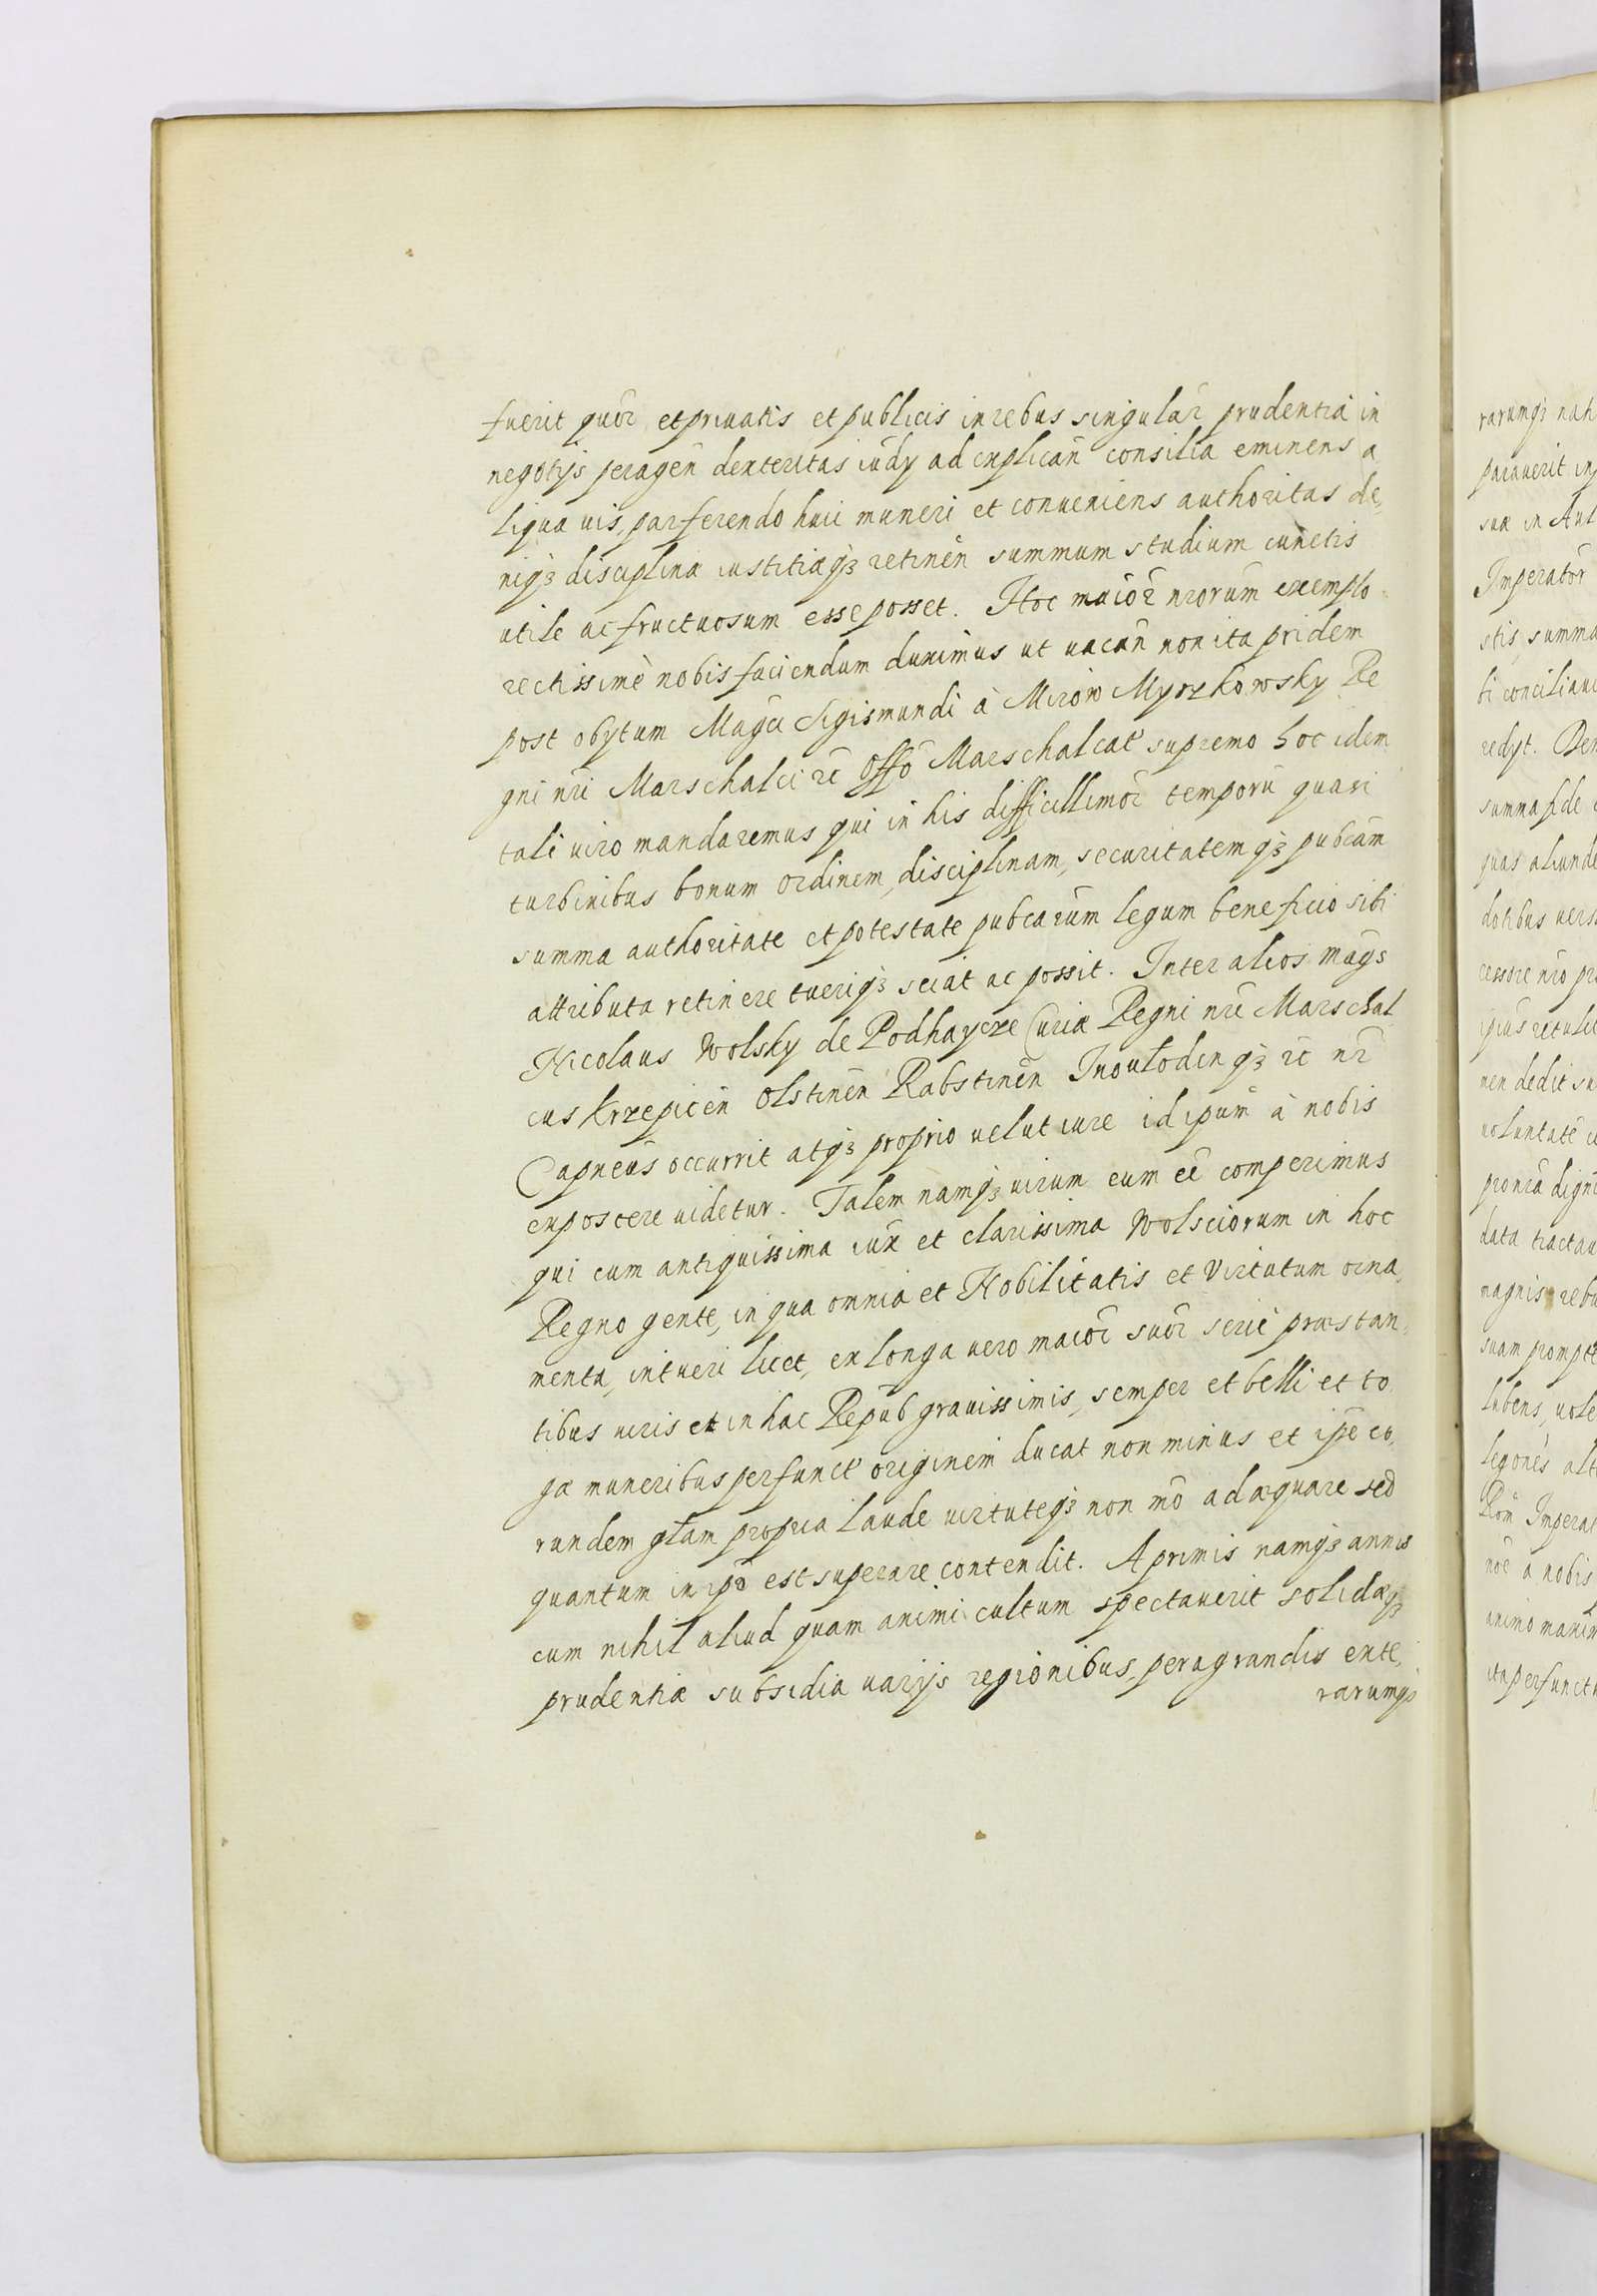 fuerit quōr et privatis et publicis in rebus singulār prudentia in
negotijs peragēn dexteritas iūdÿ ad explicān consilia eminens a
liqua vis, par ferendo huic muneri et conveniens authoritas de,
niqȝ disciplinæ iustitiæqȝ retinēn summum studium cunctis
utile ac fructuosum esse posset. Hoc maiōr nrorūm exemplo
rectissimè nobis faciendum duximus ut vacān non ita pridem
post obytum Magci Sigismundi à Mirōw Myszkowsky Re
gni nri Marschalci rc̄ Offō Marschalcat supremo hoc idem
tali viro mandaremus qui in his difficillimōr temporū quasi
turbinibus bonum ordinem, disciplinam, securitatemqȝ pubcām
summa authoritate et potestate pubcarūm legum beneficio sibi
attributa retinere tueriqȝ sciat ac possit. Inter alios māgs
Nicolaus Wolsky de Podhaycze Curiæ Regni nri Marschal
cus Krzepicēn Olstinēn Rabstinēn Inoulodenqȝ rc̄ nr̄
Capnēus occurrit atqȝ proprio velut iure id ipūm à nobis
exposcere videtur. Talem namqȝ virum eum eē comperimus
qui cum antiquissima iūx et clarissima Wolsciorum in hoc
Regno gente, in qua omnia et Nobilitatis et Virtutum orna,
menta, intueri licet, ex longa vero maiōr suōr serie præstan,
tibus viris et in hac Repūb gravissimis, semper et belli et to
gæ muneribus perfunct originem ducat non minus et ipē eo,
rundem glām propria laude virtuteqȝ non mō adæquare sed
quantum in ipō est superare contendit. A primis namqȝ annis
cum nihil aliud quam animi cultum spectaverit solidæqȝ
prudentiæ subsidia varijs regionibus, peragrandis exte,
rarumqȝ
rarumqȝ nah
paraverit in
suæ in Aul
Imperatōr
stis, summa
bi conciliavi
redyt. Den
summa fide
quas aliunde
dotibus vers
cessore nro pr
ipius retulit
nen dedit su
voluntatē
pro nrā digni
data tractav
magnis rebu
suam prompte
lubens, vole
legonēs alt
Rōm Imperat
nōe a nobis
animo maxim
ita perfunctu